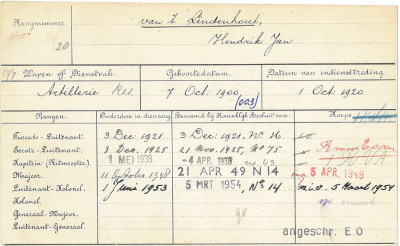 Rangnummer. van 't Lindenhout,
20 Hendrik Jan
Wapen of Dienstvak. Geboortedatum. Datum van indiensttreding.
Artillerie Res. 7 Oct. 1900 (003) 1 Oct 1920
Rangen. Onderdom in dienst. Benoemd bij Koninklijk Besluit van: Korps.
Tweede-Luitenant 3 Dec. 1921 3 Dec. 1921, No. 16.
Eerste-Luitenant 3 Dec. 1925 21 Nov. 1925, No 75
Kapitein (Ritmeester). 1 MEI 1938 -4 APR. 1938 no. 43
Majoor. 11 October 1948 21 APR 49 N 14 5 APR. 1949
Luitenant-Kolonel. 1 Juni 1953 5 MRT 1954, No 14 m.i.v. 5 Maart 1954
Kolonel.
Generaal-Majoor.
Luitenant-Generaal. angeschr. E.O